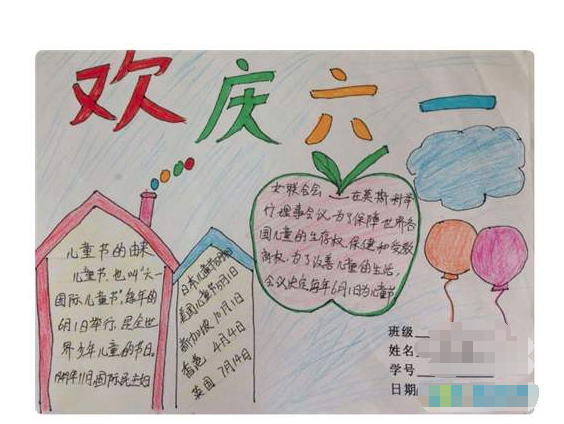 欢庆六一
儿童节的由来
儿童节,也叫“六一
国际儿童节”,每年的
6月1日举行,是全世
界少年儿童的节日。
1949年11月,国际民主妇
日本儿童节5月5日
美国儿童节5月1日
新加坡10月1日
香港 4月4日
英国 7月14日
女联合会 在莫斯科举
行理事会议,为了保障世界各
国儿童的生存权、保健和受教
育权,为了改善儿童的生活,
会议决定每年6月1日为儿童节
班级
姓名
学号
日期